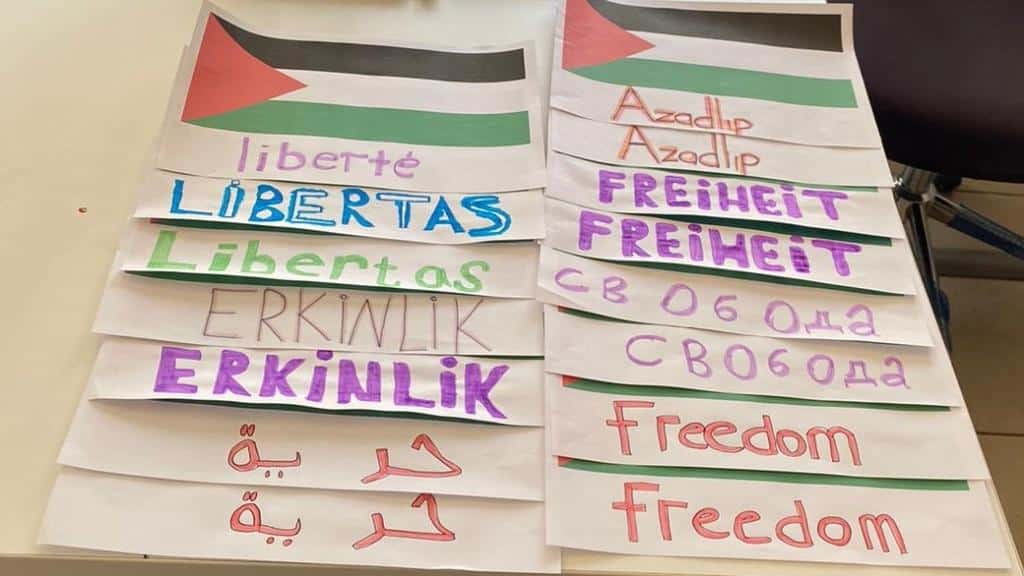 liberté
LİBERTAS
Libertas
ERKİNLİK
ERKİNLİK
حرية
حرية
Azadlıp
Azadlıp
FREİHEİT
FREİHEİT
СВОбОда
СВОбОда
Freedom
Freedom